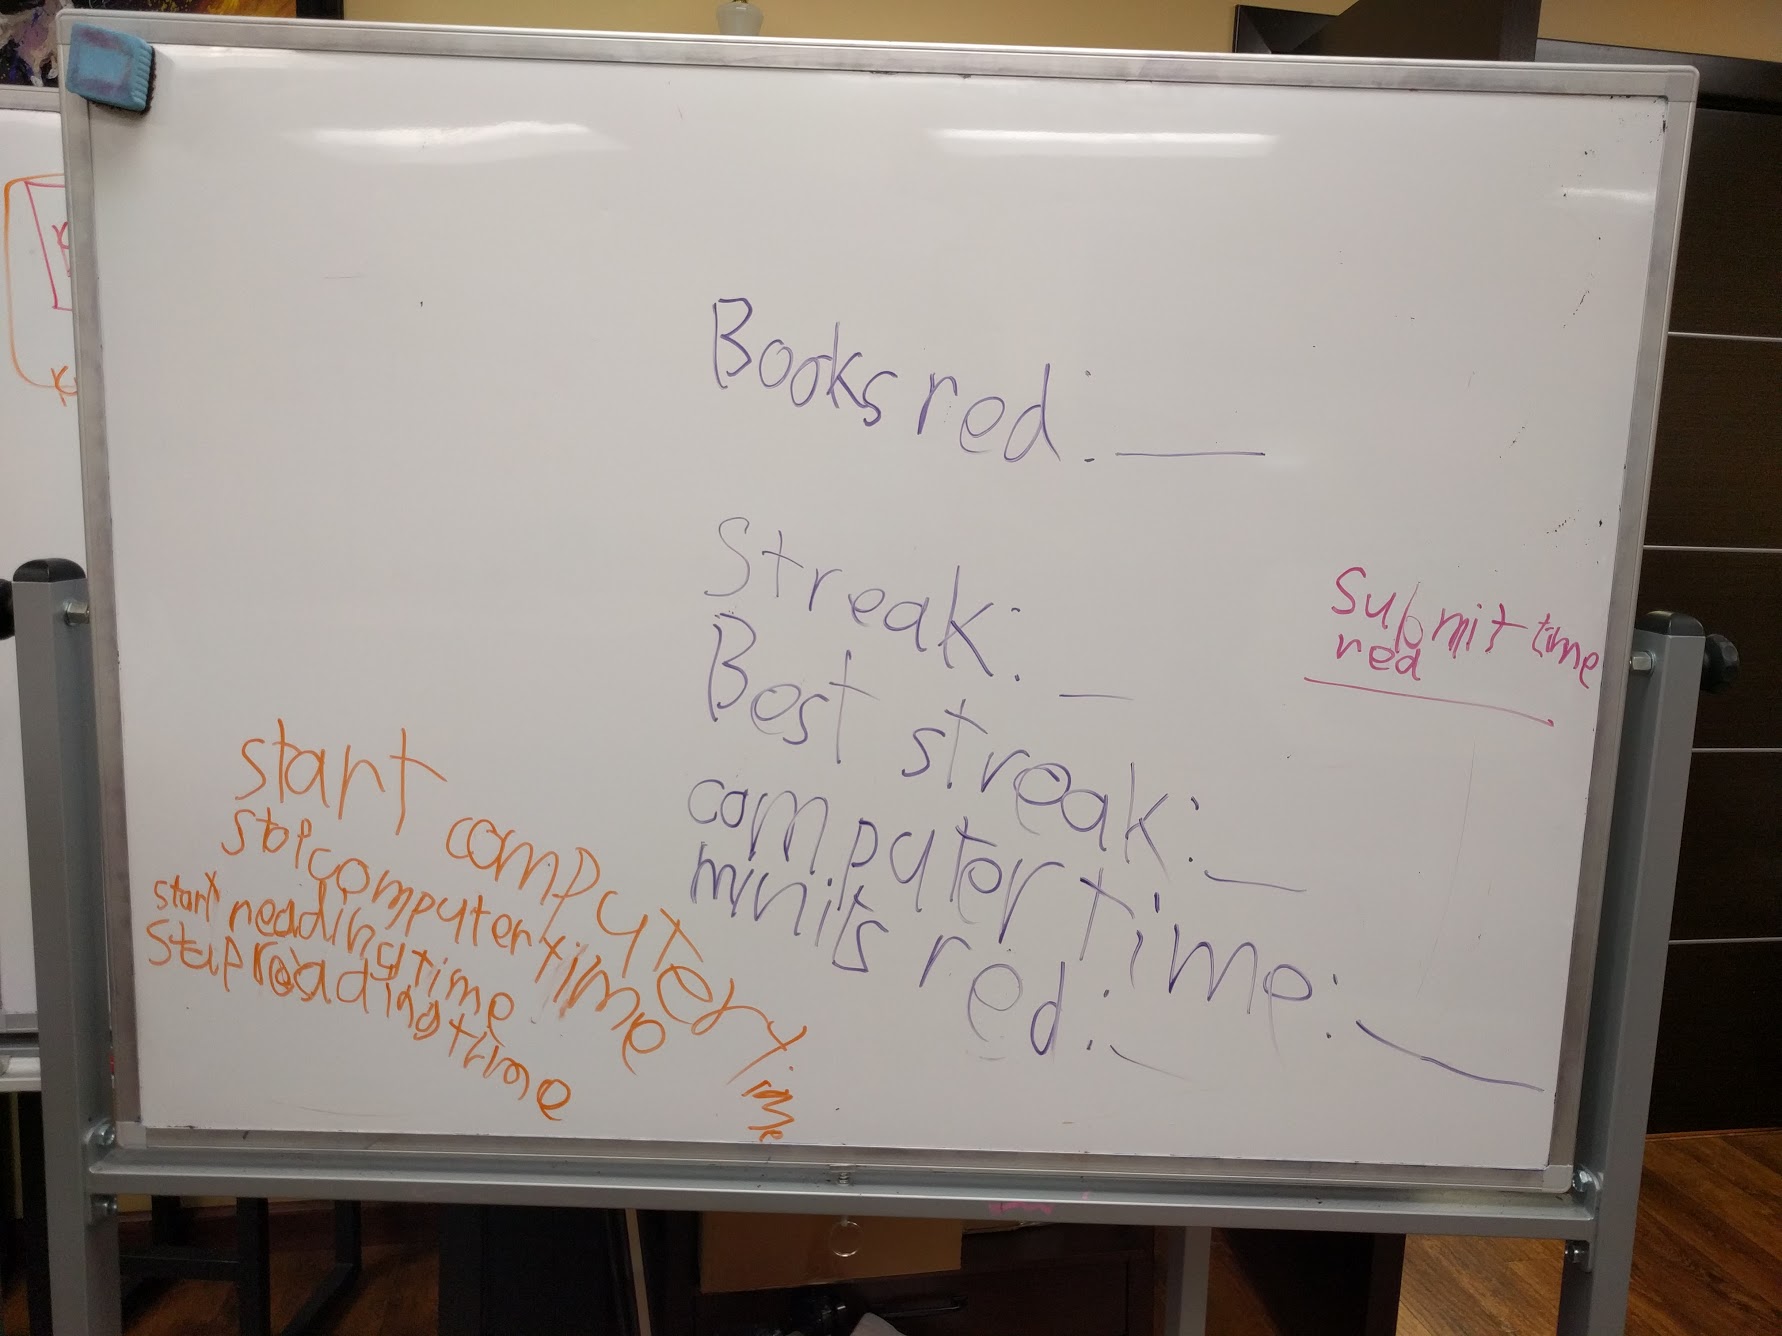 Books red: ___
Streak: _
Best streak: __
computer time: ___
minits red: _
Submit time
red
start computer time
stop computer time
start reading time
stop reading time